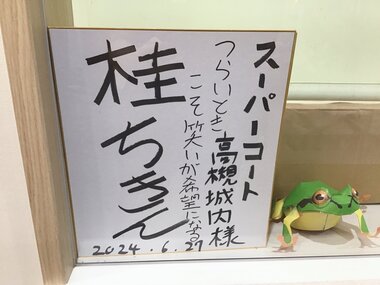 スーパーコート
高槻城内様
つらいとき
こそ笑いが希望になる。
桂ちきん
2024.6.27